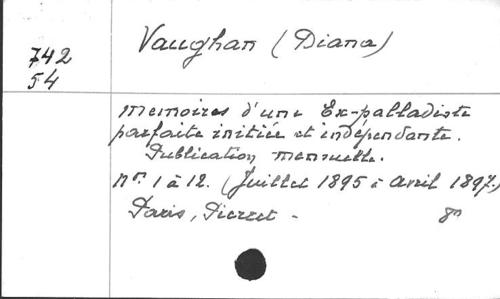 Vaughan (Diana)
742
54
Memoires d'une Ex-palladiste
parfaite initiée et indépendante.
Publication mensuelle.
Nos. 1 à 12. (Juillet 1895 à Avril 1897.)
Paris, Pierret - 8o